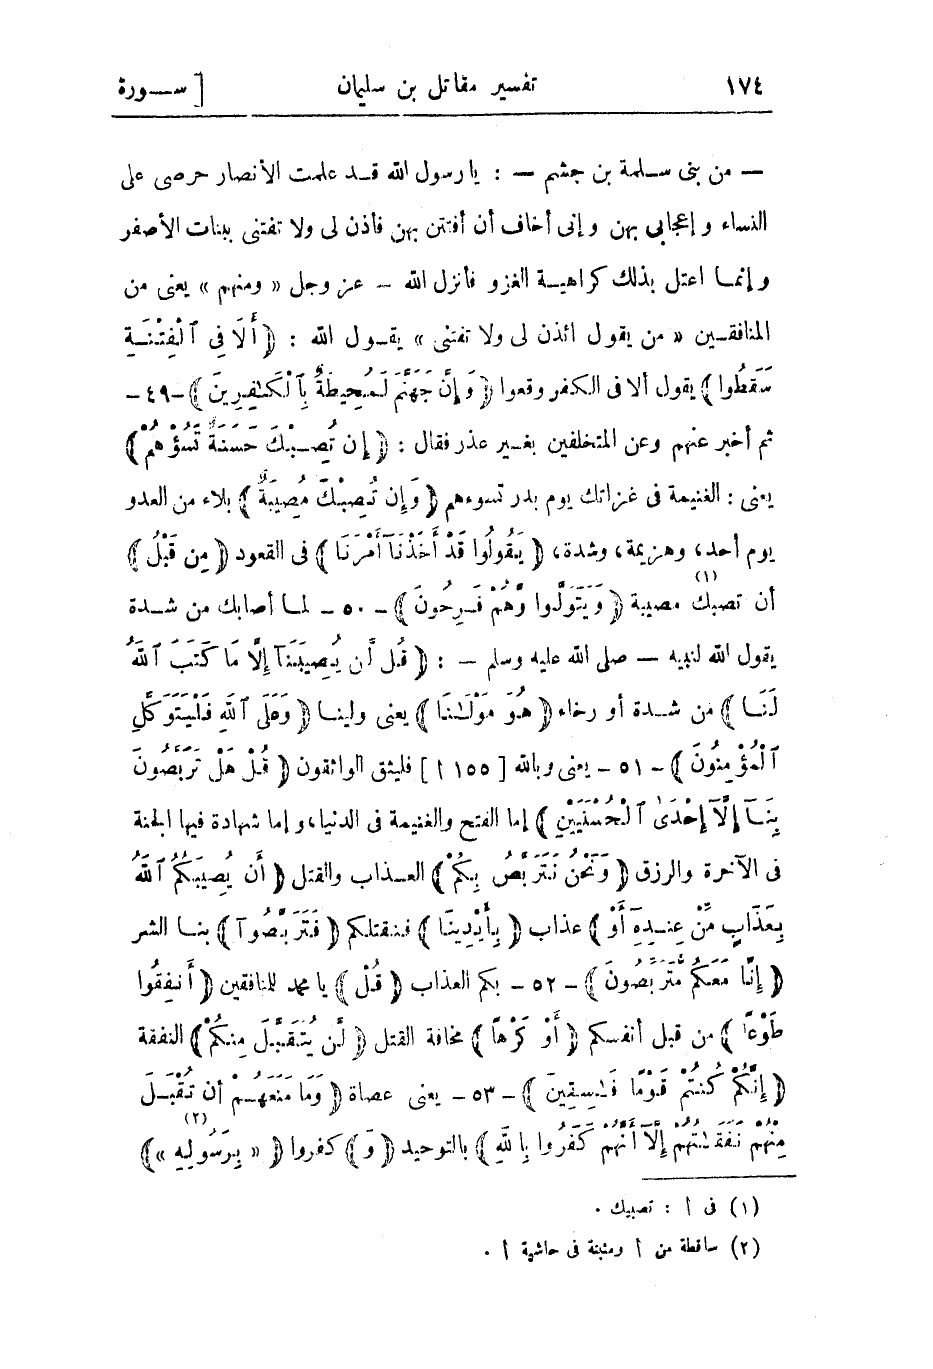 ١٧٤ تفسير مقاتل بن سليمان [ سورة
— من بنى سلمة بن جشم — : يا رسول الله قد علمت الأنصار حرصى على
النساء وإعجابي بهن وإنى أخاف أن أفتتن بهن فأذن لى ولا تفتنى ببنات الأصفر
وإنما اعتل بذلك كراهية الغزو فأنزل الله — عز وجل « ومنهم » يعنى من
المنافقين « من يقول ائذن لى ولا تفتنى » يقول الله : ﴿ أَلَا فِى ٱلْفِتْنَةِ
سَقَطُوا ﴾ يقول ألا فى الكفر وقعوا ﴿ وَإِنَّ جَهَنَّمَ لَمُحِيطَةٌ بِٱلْكَٰفِرِينَ ﴾ - ٤٩ -
ثم أخبر عنهم وعن المتخلفين بغير عذر فقال : ﴿ إِن تُصِبْكَ حَسَنَةٌ تَسُؤْهُمْ ﴾
يعنى : الغنيمة فى غزاتك يوم بدر تسوءهم ﴿ وَإِن تُصِبْكَ مُصِيبَةٌ ﴾ بلاء من العدو
يوم أحد، وهزيمة، وشدة، ﴿ يَقُولُوا قَدْ أَخَذْنَآ أَمْرَنَا ﴾ فى القعود ﴿ مِن قَبْلُ ﴾
أن تصبك (١) مصيبة ﴿ وَيَتَوَلَّوا وَّهُمْ فَرِحُونَ ﴾ - ٥٠ - لما أصابك من شدة
يقول الله لنبيه — صلى الله عليه وسلم — : ﴿ قُل لَّن يُصِيبَنَآ إِلَّا مَا كَتَبَ ٱللَّهُ
لَنَا ﴾ من شدة أو رخاء ﴿ هُوَ مَوْلَىٰنَا ﴾ يعنى ولينا ﴿ وَعَلَى ٱللَّهِ فَلْيَتَوَكَّلِ
ٱلْمُؤْمِنُونَ ﴾ - ٥١ - يعنى وبالله [ ١٥٥ أ ] فليثق الواثقون ﴿ قُلْ هَلْ تَرَبَّصُونَ
بِنَآ إِلَّآ إِحْدَى ٱلْحُسْنَيَيْنِ ﴾ إما الفتح والغنيمة فى الدنيا، وإما شهادة فيها الجنة
فى الآخرة والرزق ﴿ وَنَحْنُ نَتَرَبَّصُ بِكُمْ ﴾ العذاب والقتل ﴿ أَن يُصِيبَكُمُ ٱللَّهُ
بِعَذَابٍ مِّنْ عِندِهِٓ أَوْ ﴾ عذاب ﴿ بِأَيْدِينَا ﴾ فنقتلكم ﴿ فَتَرَبَّصُوٓا ﴾ بنا الشر
﴿ إِنَّا مَعَكُم مُّتَرَبِّصُونَ ﴾ - ٥٢ - بكم العذاب ﴿ قُلْ ﴾ يا محمد للمنافقين ﴿ أَنفِقُوا
طَوْعًا ﴾ من قبل أنفسكم ﴿ أَوْ كَرْهًا ﴾ مخافة القتل ﴿ لَّن يُتَقَبَّلَ مِنكُمْ ﴾ النفقة
﴿ إِنَّكُمْ كُنتُمْ قَوْمًا فَٰسِقِينَ ﴾ - ٥٣ - يعنى عصاة ﴿ وَمَا مَنَعَهُمْ أَن تُقْبَلَ
مِنْهُمْ نَفَقَٰتُهُمْ إِلَّآ أَنَّهُمْ كَفَرُوا بِٱللَّهِ ﴾ بالتوحيد ﴿ وَ ﴾ كفروا ﴿ « بِرَسُولِهِ (٢) » ﴾
(١) فى أ : تصبيك .
(٢) ساقطة من أ ومثبتة فى حاشية أ .